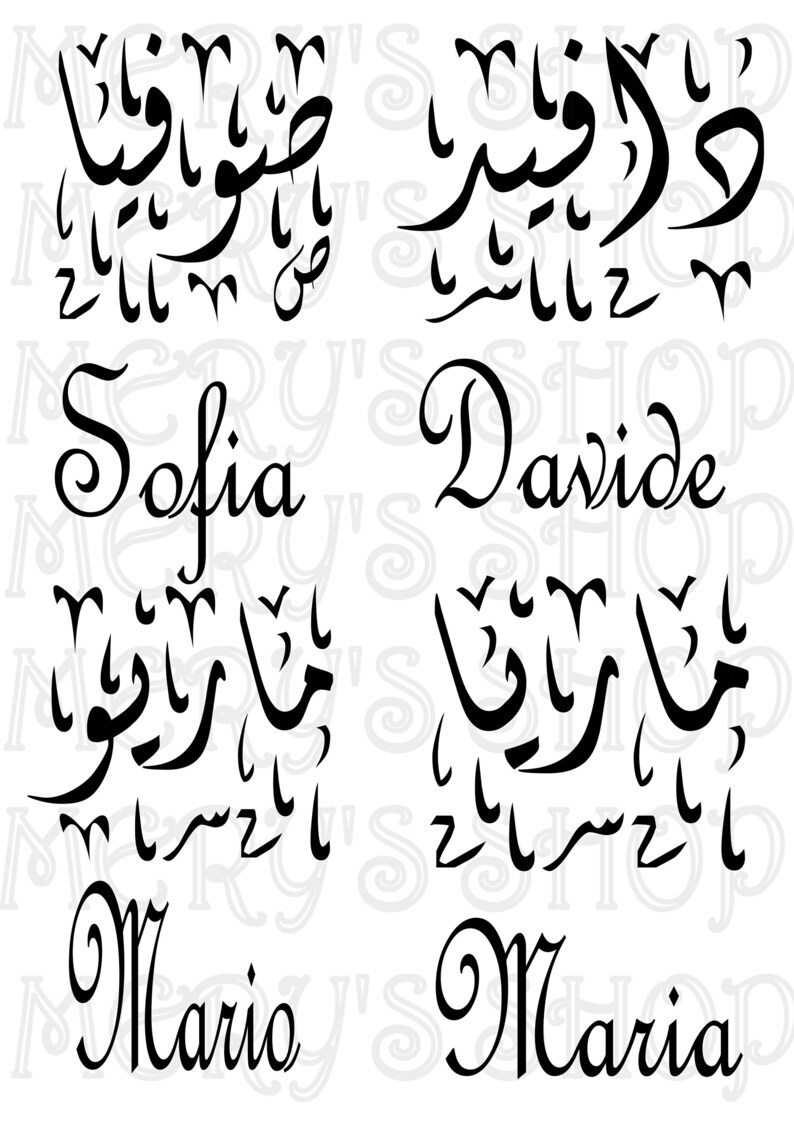 صوفيا دافيد
Sofia Davide
ماريو ماريا
Mario Maria
MERY'S SHOP
MERY'S SHOP
MERY'S SHOP
MERY'S SHOP
MERY'S SHOP
MERY'S SHOP
MERY'S SHOP